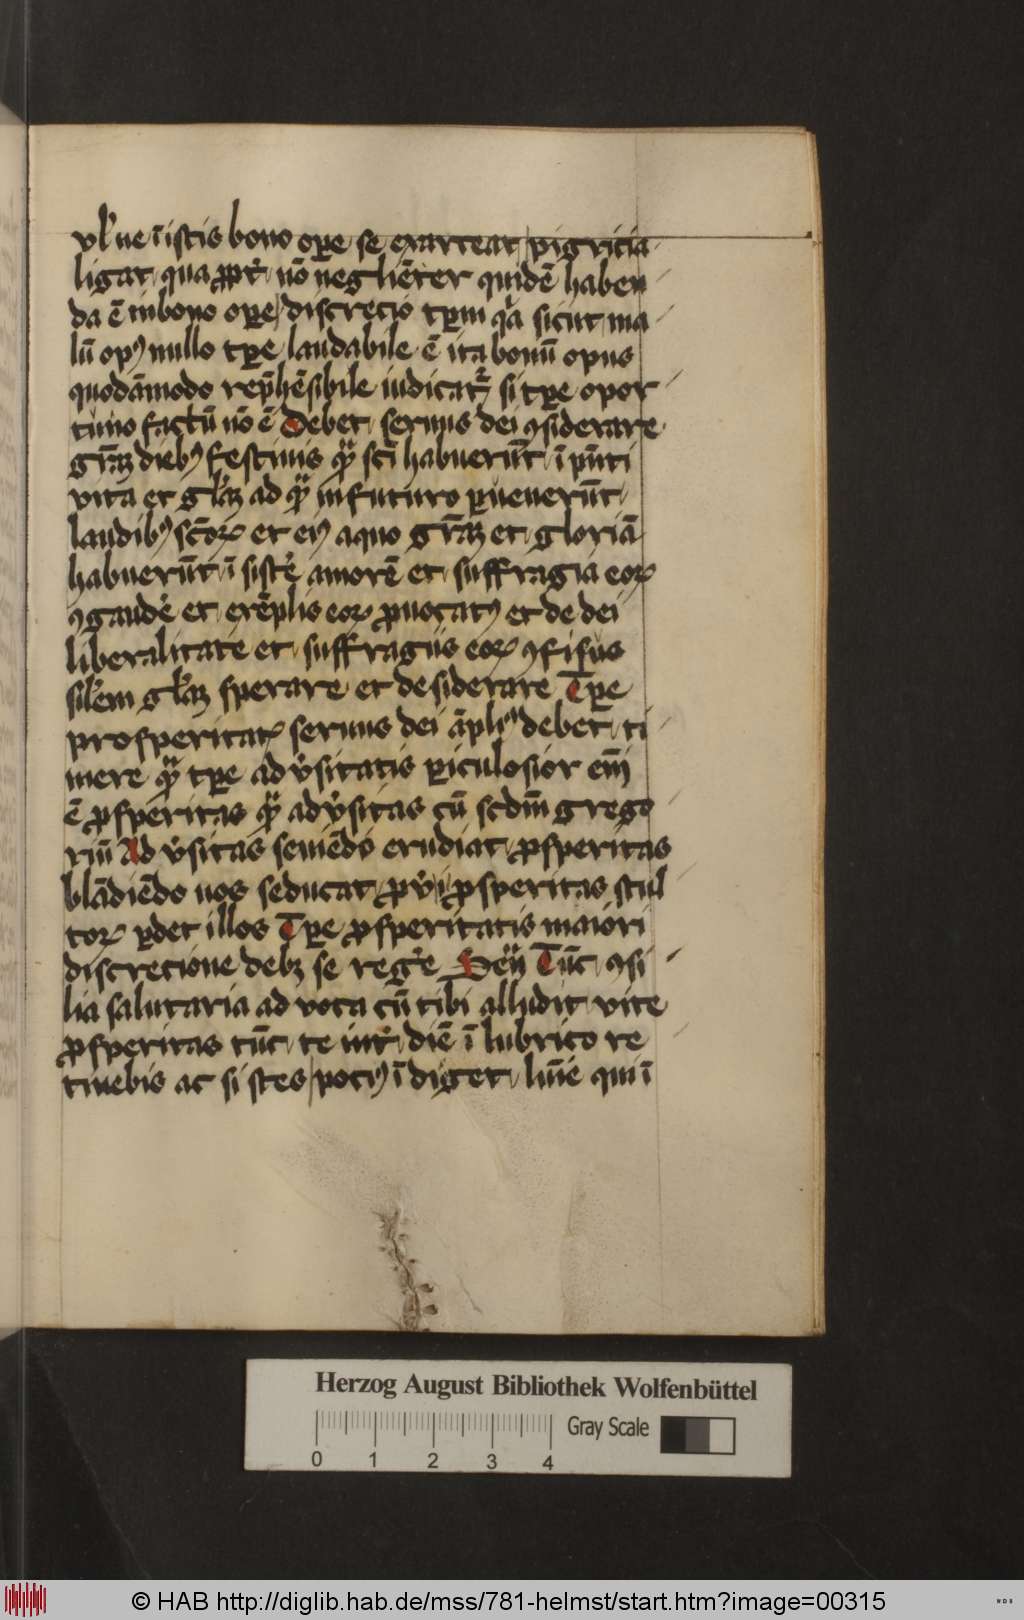 vl' ne ī istis bono ope se exarceat pigricia
ligat qua ppt' nō negliēter quidē haben
da ē in bono ope discrecio tpm qa sicut ma
lū op9 nullo tpe laudabile ē ita bonū opus
quodāmodo rep̄hēsibile iudicat' si tpe opor
tuno factū nō ē Debet seruus dei 9siderare
grāz dieb9 festiuis qā scī habuerūt ī pn̄ti
vita et gl'az ad qā in futuro puenerūt
laudib9 scōꝝ et ei9 a quo grāz et gloriā
habuerūt ī siste' amorē et suffragia eoꝝ
9gaude' et exēplis eoꝝ puocat9 et de dei
liberalitate et suffragiis eoꝝ 9fisus
sil'em gl'az sperare et desiderare Tpe
prosperitat' seruus dei āpli9 debet ti
mere qā tpe adv'sitatis piculosior em̄
ē psperitas qā adv'sitas cū scdm̄ grego
riū Adv'sitas seuiēdo erudiat psperitas
blādiēdo nos seducat pv' psperitas stul
toꝝ pdet illos Tpe psperitatis maiori
discrecione debz se reg'e Sen̄ Tūc 9si
lia salutaria ad vota cū tibi alludit vite
psperitas tūc te int' diē ī lubrico re
tinebis ac sistes poci9 ī diget lim̄e qui ī
Herzog August Bibliothek Wolfenbüttel
Gray Scale
0 1 2 3 4
© HAB http://diglib.hab.de/mss/781-helmst/start.htm?image=00315